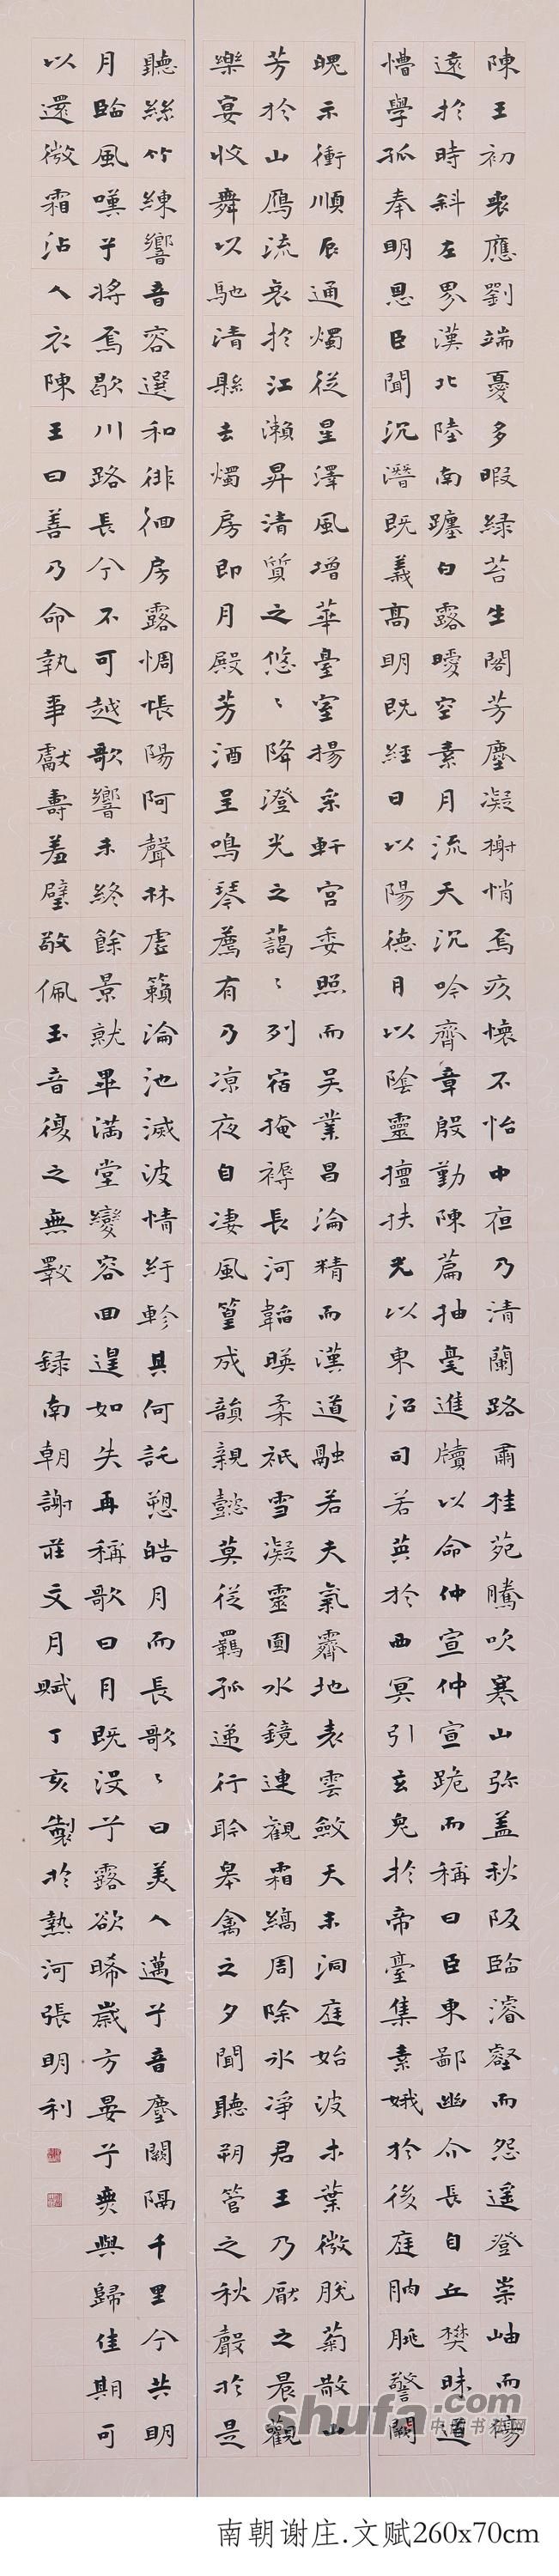 陳王初喪應劉端憂多暇綠苔生閣芳塵凝榭悄焉疚懷不怡中夜乃清蘭路肅桂苑騰吹寒山弥盖秋阪臨濬壑而怨遙澄崇岫而傷
遠於時斜左界漢北陸南躔白露曖空素月流天沉吟齊章殷勤陳篇抽毫進牘以命仲宣仲宣跪而稱曰臣東鄙幽介長自丘樊昧道
懵學孤奉明恩臣聞沉潛既義高明既經日以陽德月以陰靈擅扶光以東沼司若英於西冥引玄兔於帝臺集素娥於後庭朒朓警闕
魄示衝順辰通燭從星澤風增華臺室揚采軒宮委照而吳業昌淪精而漢道融若夫氣霽地表雲斂天末洞庭始波木葉微脫菊散山
芳於山鴈流哀於江瀨昇清質之悠〻降澄光之藹〻列宿掩褥長河韜暎柔祇雪凝靈圓水鏡連觀霜縞周除氷淨君王乃厭之晨觀
樂宴收舞以馳清縣去燭房即月殿芳酒呈鳴琴薦有乃凉夜自凄風篁成韻親懿莫從羈孤遞行聆皋禽之夕聞聽朔管之秋聲於是
聽絲竹練響音容選和徘徊房露惆悵陽阿聲林虛籟淪池滅波情紆軫其何託愬皓月而長歌〻曰美人邁兮音塵闕隔千里兮共明
月臨風嘆兮將焉歇川路長兮不可越歌響未終餘景就畢滿堂變容回遑如失再稱歌曰月既沒兮露欲晞歲方晏兮無與歸佳期可
以還微霜沾人衣陳王曰善乃命執事獻壽羞璧敬佩玉音復之無斁 録南朝謝莊文月賦丁亥製於熱河張明利
shufa.com
中国书法网
南朝谢庄.文赋260x70cm